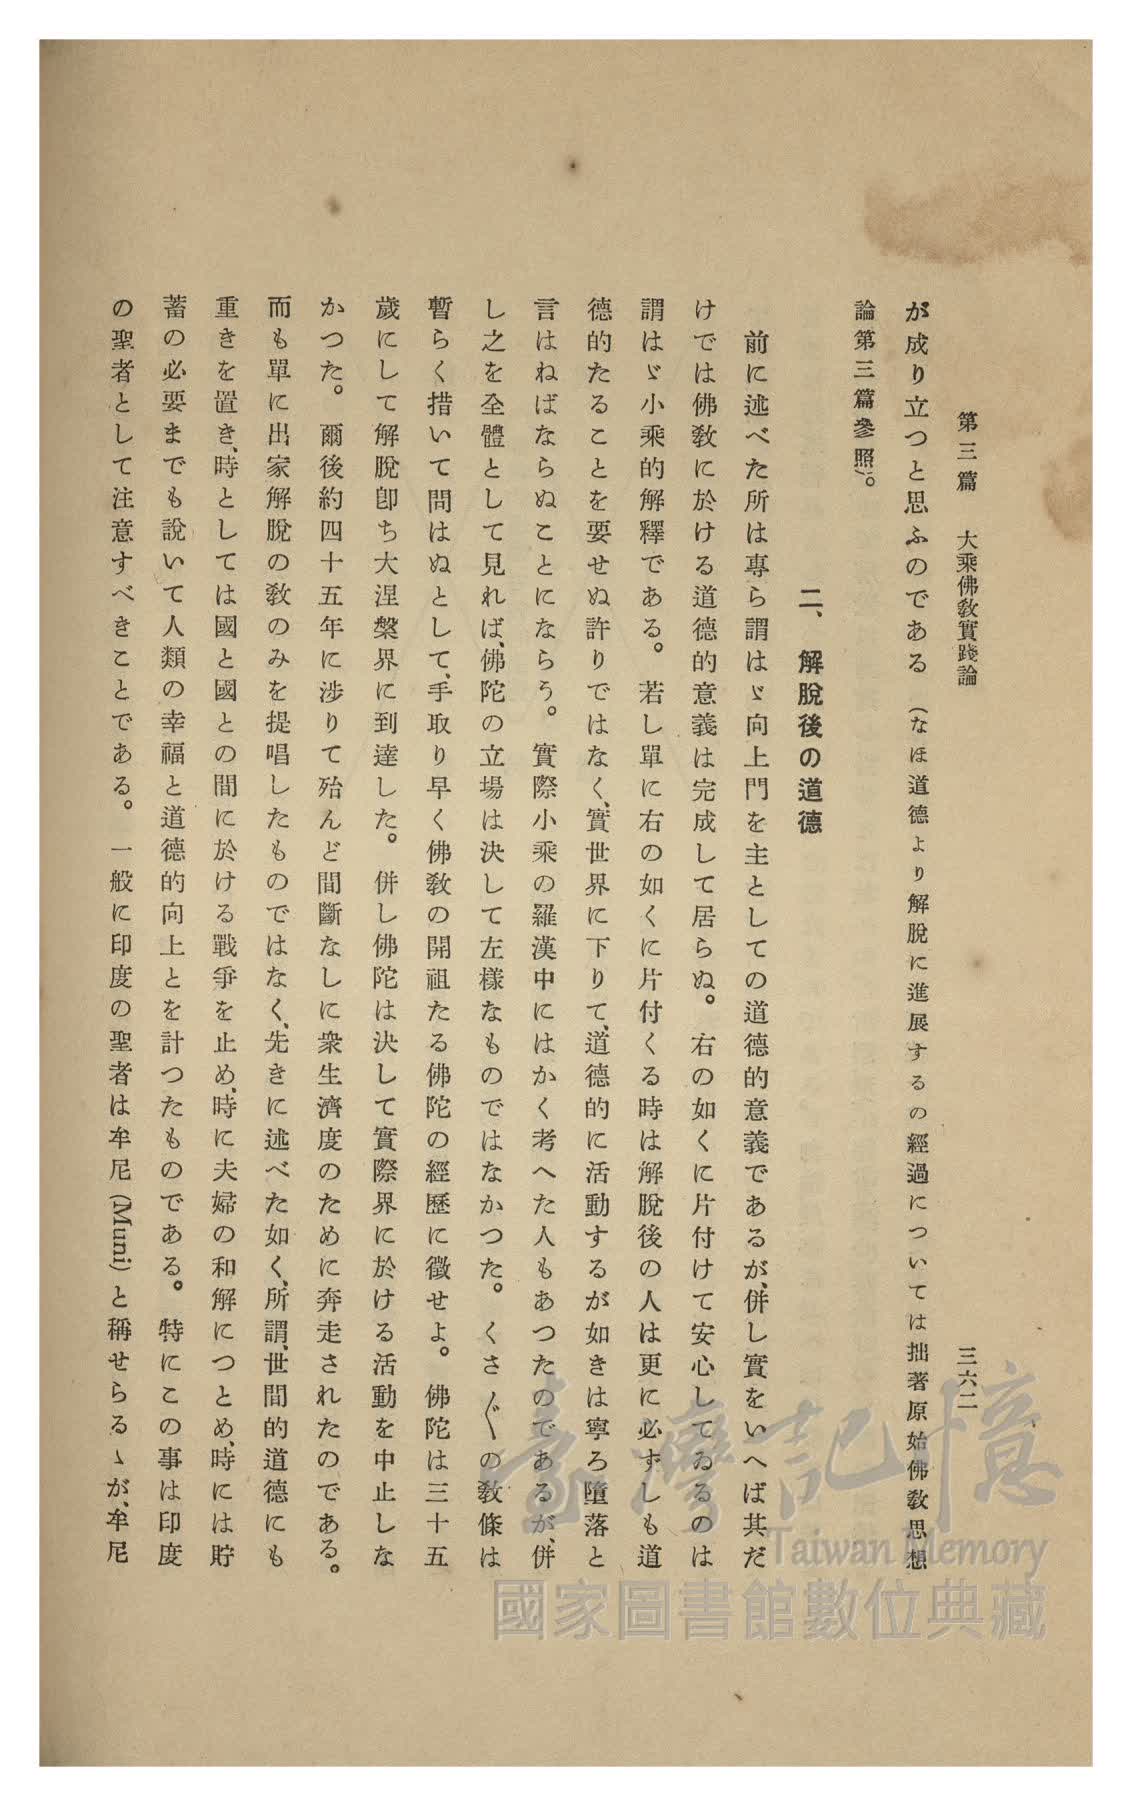 第三篇　大乘佛敎實踐論
三六二
が成り立つと思ふのである（なほ道德より解脫に進展するの經過については拙著原始佛敎思想
論第三篇參照）。
二、解脫後の道德
前に述べた所は專ら謂はゞ向上門を主としての道德的意義であるが、併し實をいへば其だ
けでは佛敎に於ける道德的意義は完成して居らぬ。右の如くに片付けて安心してゐるのは
謂はゞ小乘的解釋である。若し單に右の如くに片付くる時は解脫後の人は更に必ずしも道
德的たることを要せぬ許りではなく、實世界に下りて、道德的に活動するが如きは寧ろ墮落と
言はねばならぬことにならう。實際小乘の羅漢中にはかく考へた人もあつたのであるが、併
し之を全體として見れば、佛陀の立場は決して左樣なものではなかつた。くさ〴〵の敎條は
暫らく措いて問はぬとして、手取り早く佛敎の開祖たる佛陀の經歷に徵せよ。佛陀は三十五
歲にして解脫卽ち大涅槃界に到達した。併し佛陀は決して實際界に於ける活動を中止しな
かつた。爾後約四十五年に涉りて殆んど間斷なしに衆生濟度のために奔走されたのである。
而も單に出家解脫の敎のみを提唱したものではなく、先きに述べた如く、所謂、世間的道德にも
重きを置き、時としては國と國との間に於ける戰爭を止め、時に夫婦の和解につとめ、時には貯
蓄の必要までも說いて人類の幸福と道德的向上とを計つたものである。特にこの事は印度
の聖者として注意すべきことである。一般に印度の聖者は牟尼（Muni）と稱せらるゝが、牟尼
臺灣記憶
Taiwan Memory
國家圖書館數位典藏